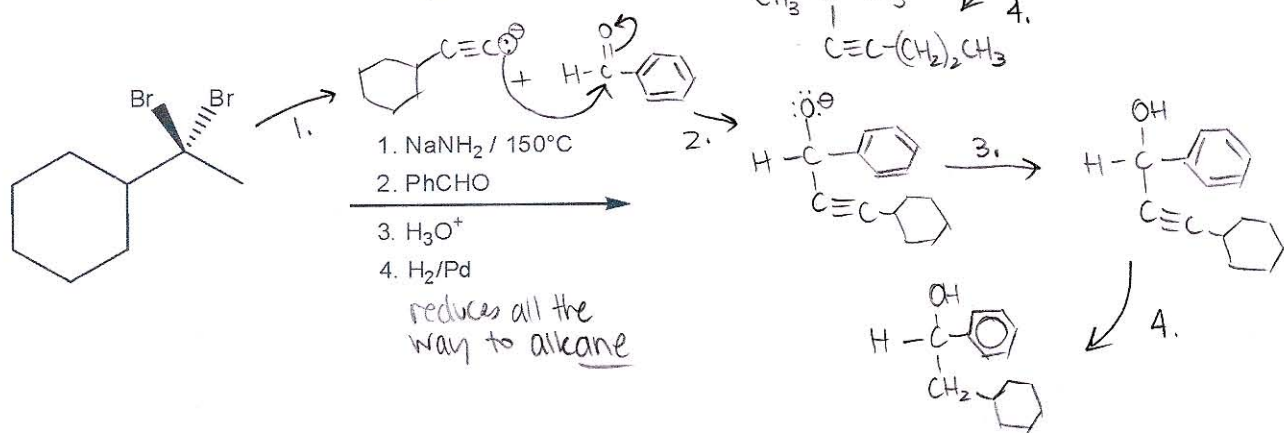 CH3
4.
C≡C-(CH2)2CH3
C≡C:⊖
+
O
H-C
Br
Br
1.
1. NaNH₂ / 150°C
2. PhCHO
3. H₃O⁺
4. H₂/Pd
reduces all the
way to alkane
2.
:Ö:⊖
H-C
C≡C
3.
OH
H-C
C≡C
4.
OH
H-C
CH2